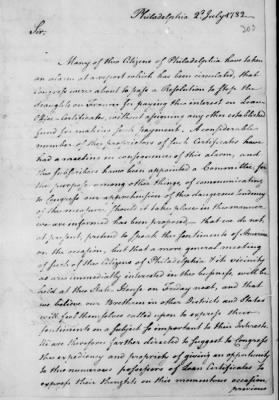 Philadelphia 2d July 1782.
203
Sir,
Many of the Citizens of Philadelphia have taken
an alarm at a report which has been circulated, that
Congress were about to pass a Resolution to stop the
draughts on France for paying the interest on Loan
Office Certificates, without assigning any other established
fund for making such payment. A considerable
number of the proprietors of such Certificates have
had a meeting in consequence of this alarm, and
the Subscribers have been appointed a Committee for
the purpose, among other things, of communicating
to Congress our apprehensions of the dangerous tendency
of the measure, should it take place in the manner
we are informed has been proposed — that we do not,
at present, pretend to speak the sentiments of America
on the occasion, but that a more general meeting
of such of the Citizens of Philadelphia & its vicinity
as are immediately interested in this business, will be
held at the State House on Friday next, and that
we believe our Brethren in other Districts and States
will feel themselves called upon to express their
sentiments on a subject so important to their Interests.
We are therefore further directed to suggest to Congress
the expediency and propriety of giving an opportunity
to the numerous possessors of Loan Certificates to
express their thoughts on this momentous occasion,
previous